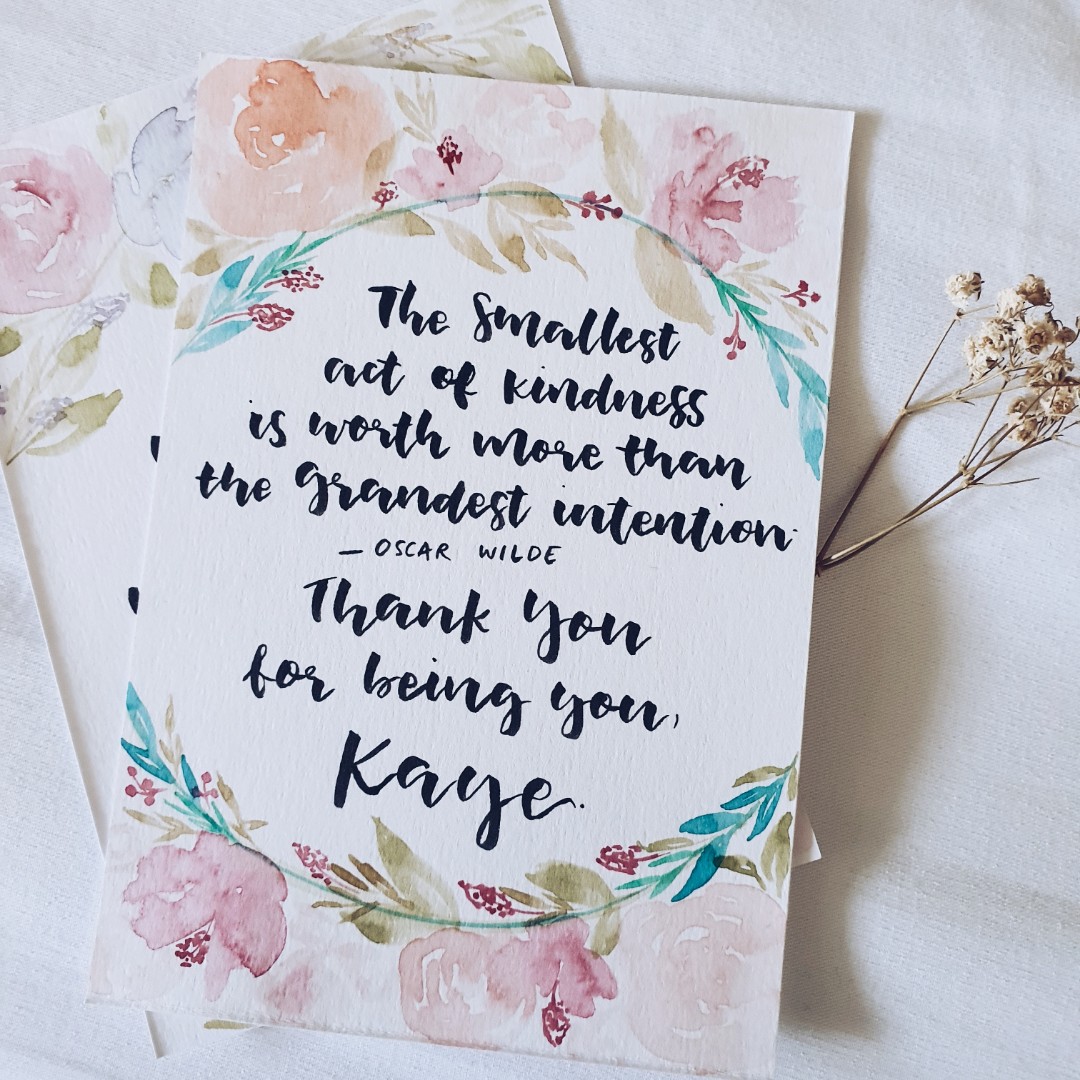 The smallest
act of kindness
is worth more than
the grandest intention.
— OSCAR WILDE
Thank You
for being you,
Kaye.